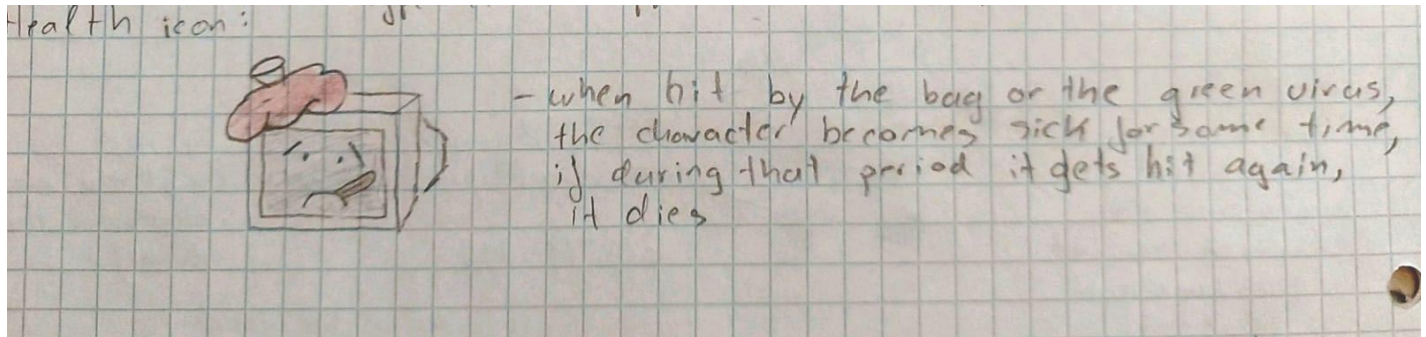 Health icon:
- when hit by the bag or the green virus,
the character becomes sick for some time,
if during that period it gets hit again,
it dies